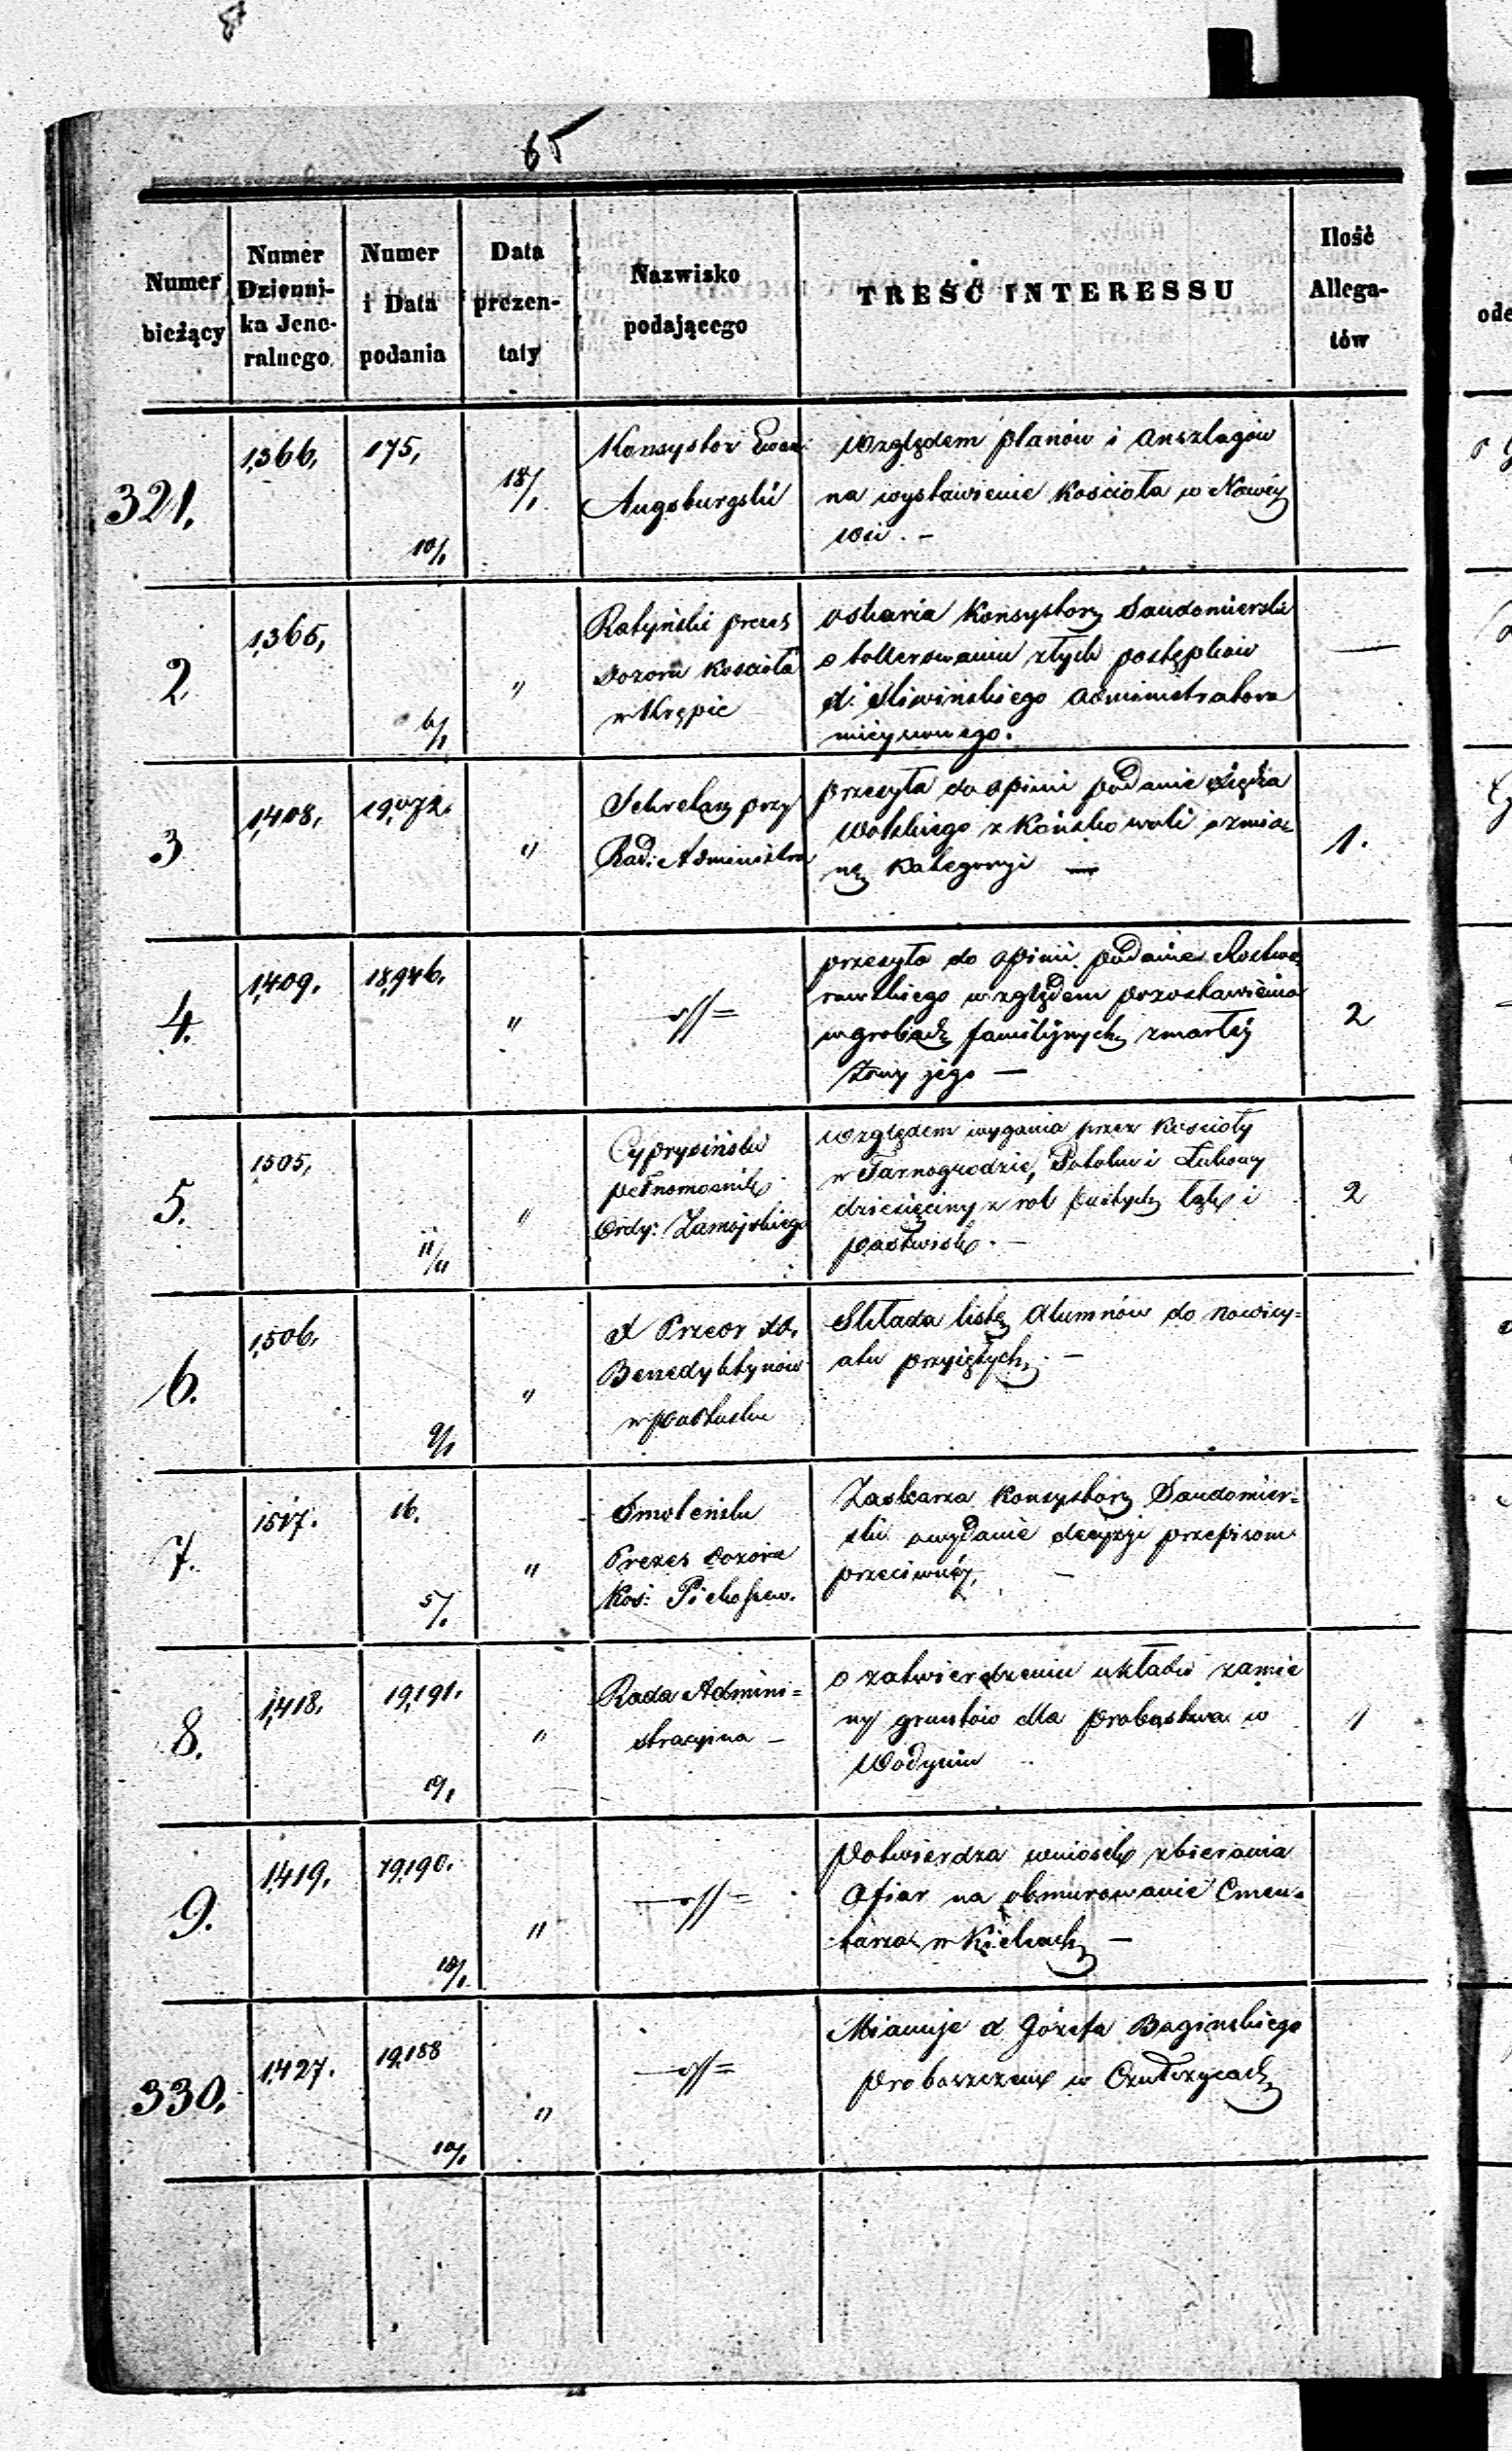 65
Numer bieżący
Numer Dzienni-
ka Jene-
ralnego
Numer i Data podania
Data prezen-
taty
Nazwisko podającego
TREŚĆ INTERESSU
Ilość Allega-
tów
321.
1,366,
175,
10/1
18/1
Konsystor Ewan:
Augsburgski
Względem planów i anszlagów
na wystawienie Kościoła w Nowéy
wsi. –
2.
1,365,
6/1
"
Ratyński prezes
Dozoru Kościoła
w Krępie
oskarża Konsystorz Sandomierski
o tollerowaniu złych postępków
X. Sliwińskiego administratora
miejscowego.
3
1,408,
19,072.
"
Sekretarz przy
Rad: Administra
przesyła do opinii podanie Xiędza
Wolskiego z Końsko woli o zmia=
nę Kategoryi —
1.
4.
1,409.
18,946.
"
—//=
przesyła do opinii podanie
rowskiego względem pozostawienia
w grobach familijnych zmarłéj
żony jego —
2
5.
1505,
11/11
"
Cyprysiński
pełnomocnik
Ordy: Zamojskiego
Względem wygania przez Kościoły
w Tarnogrodzie, Potoku i Łukowy
dziesięciny z rol pustych łąk i
pastwisk. –
2
6.
1,506.
9/1
"
X Przeor XX.
Benedyktynów
w Pułtusku
Składa listę Alumnów do nowicy=
atu przyiętych. –
7.
1517.
16.
5/1
"
Smoleński
Prezes Dozoru
Koś:
Zaskarża Konsystorz Sandomier=
ski o wydanie decyzyi przepisom
przeciwnéj, –
8.
1,418.
19,191.
19/1
"
Rada Admini=
stracyina –
o zatwierdzeniu układu zamia
ny gruntów dla probostwa w
Wodyniu
1
9.
1,419.
19,190.
10/1
"
—//=
Potwierdza wniosek zbierania
Ofiar na obmurowanie Cmen=
tarza w Kielcach —
330.
1,427.
19,188
10/1
"
—//=
Mianuje X Józefa Baginskiego
Proboszczem w Czułczycach